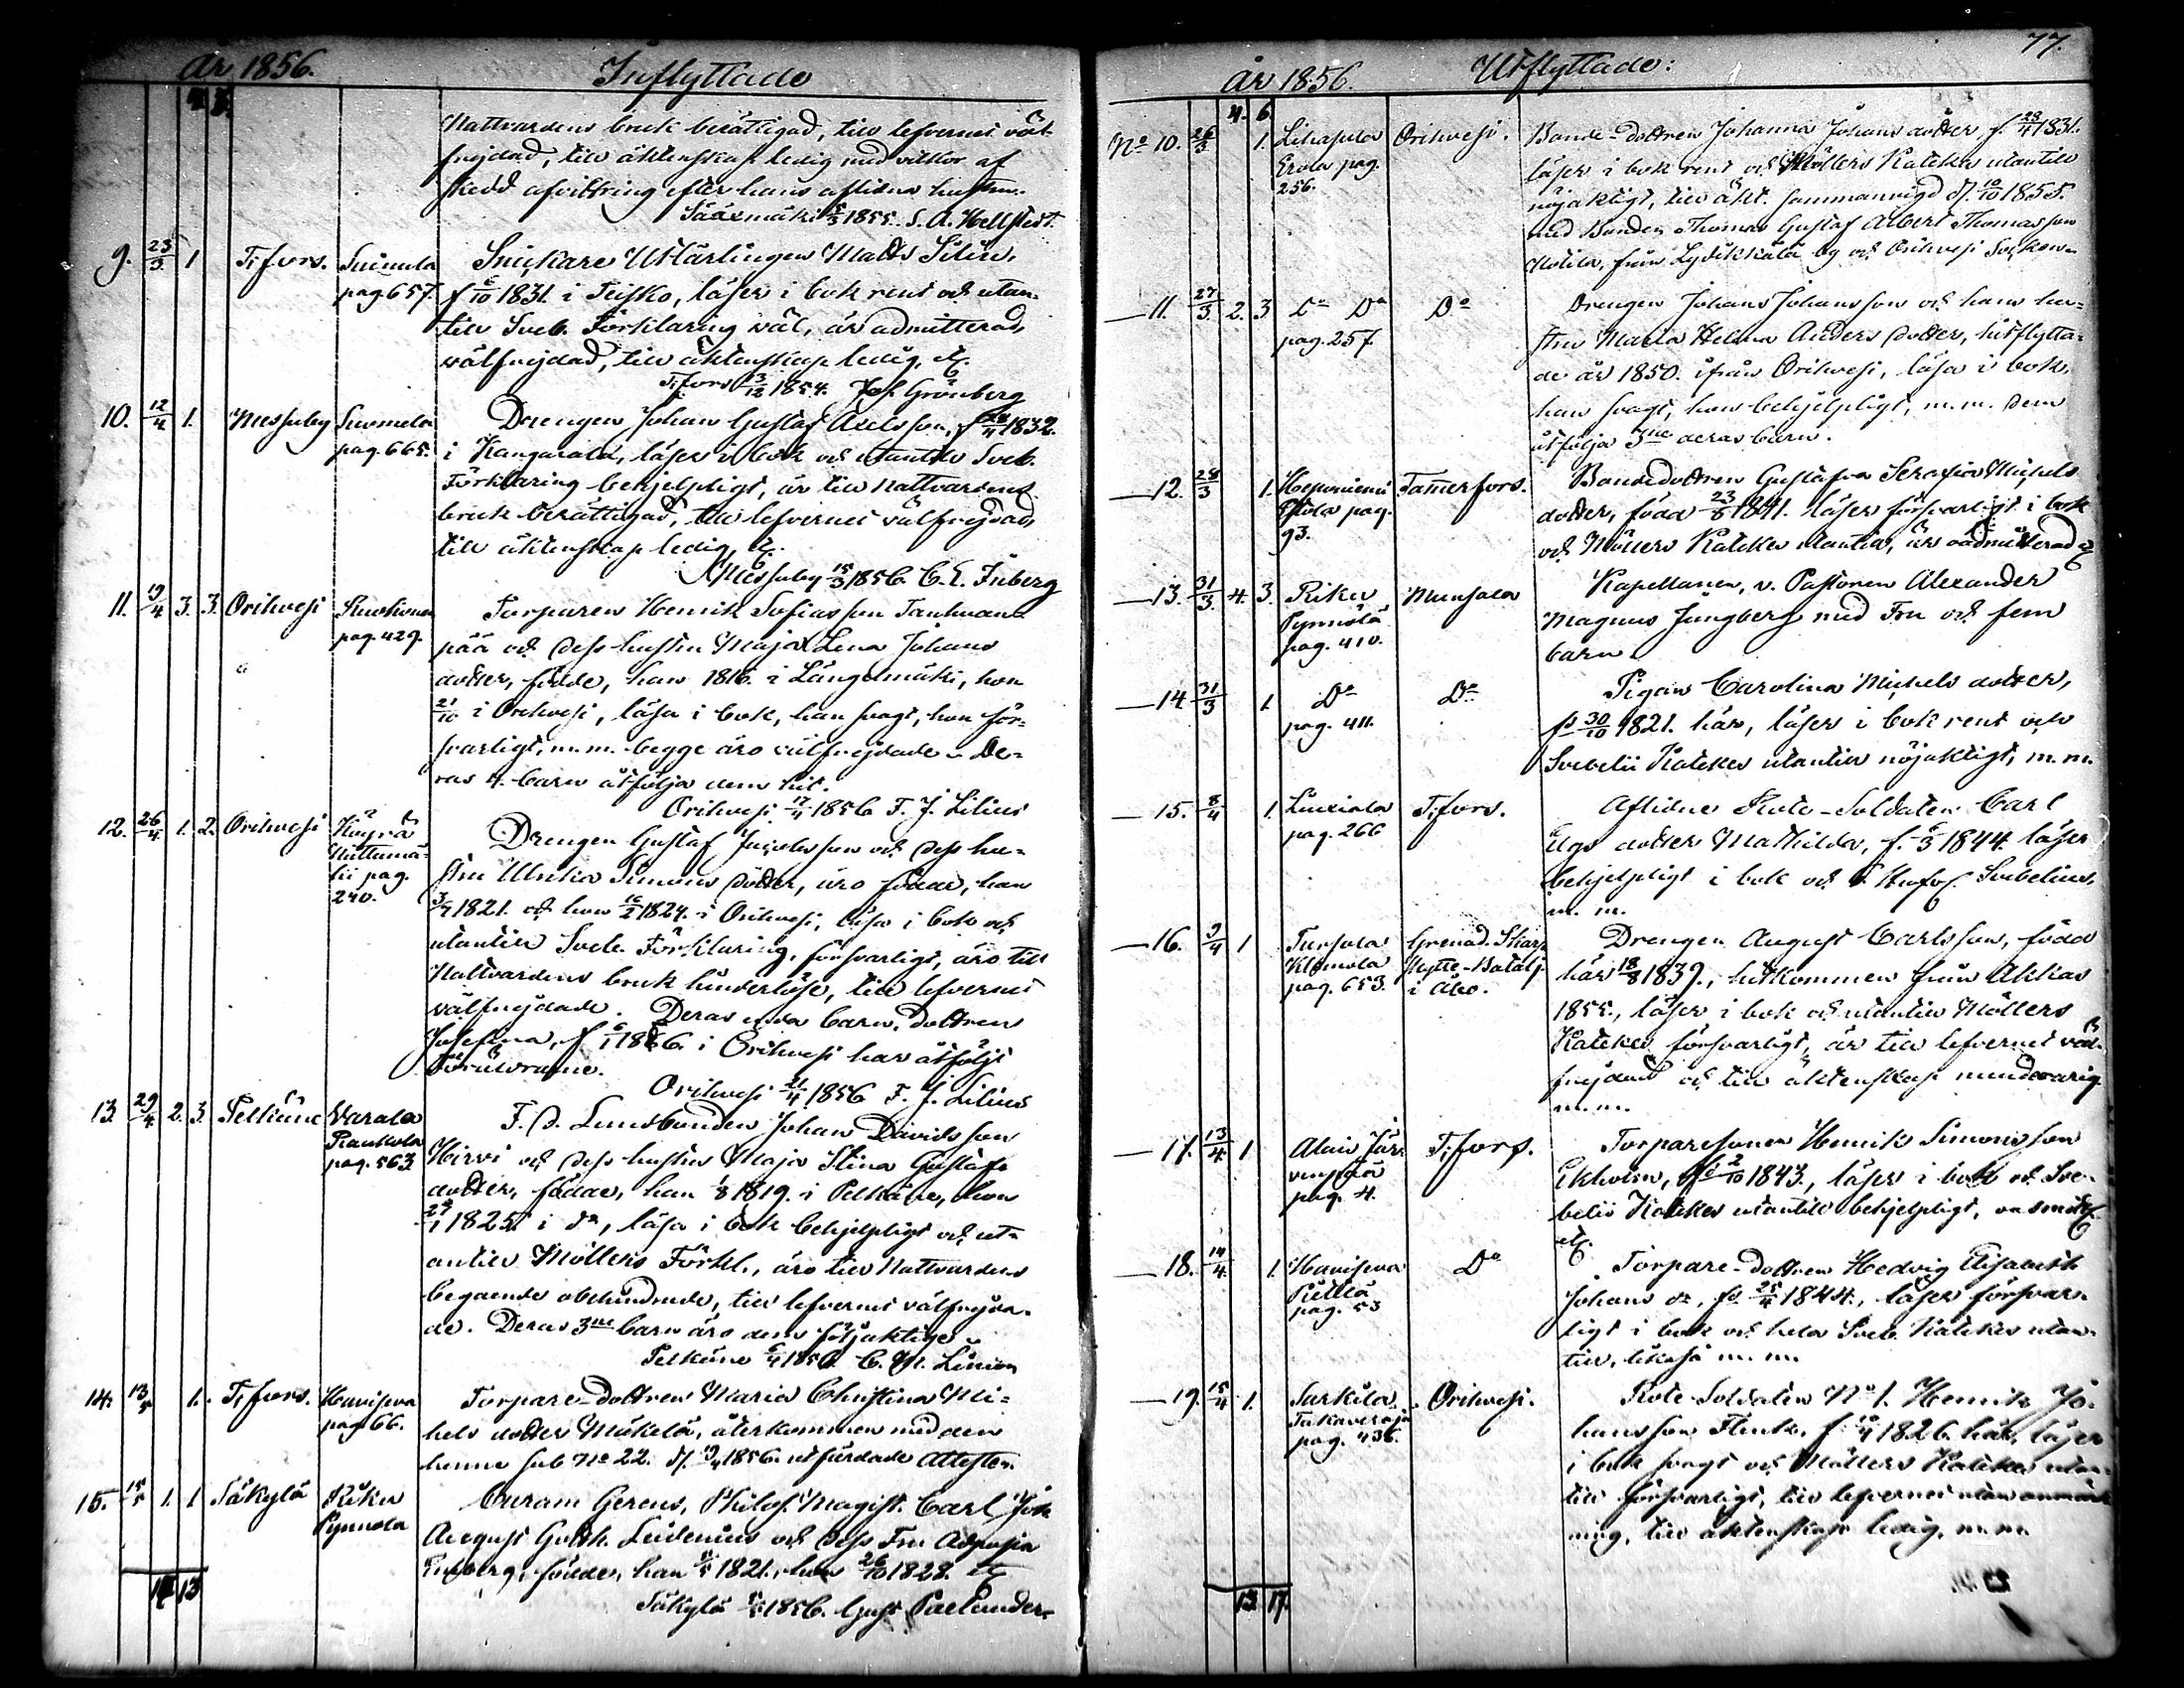 År 1856.
Inflyttade
Nattvardens bruk berättigad, till lefvernet väl-
frejdad, till äktenskap ledig med vilkor af
skedd afvittring efter hans aflidna hustru.
Sääxmäki 1855. S. A. Hellstedt.
9. 23/3 1 T:fors. Suinula pag. 657.
Snickare Utlärlingen Matts Silin,
f 1831. i Teisko, läser i bok rent och utan-
till Sveb. Förklaring väl, är admitterad,
välfrejdad, till äktenskap ledig, etc.
T:fors 3/12 1854. Joh. Grönberg
10. 12/4 1. Messuby Suomela pag. 665.
Drengen Johan Gustaf Axelsson, f 1832.
i Kangasala, läser i bok och utantill Sveb.
Förklaring behjelpligt, är till Nattvardens
bruk berättigad, till lefvernet välfrejdad,
till äktenskap ledig, etc.
Messuby 15/3 1856. C. E. Inberg
11. 19/4 3. 3. Orihvesi pag. 429.
Torparen Henrik Sofiasson
pää och dess hustru Maja Lena Johans
dotter, födde, han 1816. i Längelmäki, hon
21/10 i Orihvesi, läsa i bok, han svagt, hon för-
svarligt, m. m. begge äro välfrejdade. De-
ras 4. barn åtfölja dem hit.
Orihvesi 17/4 1856 F. J. Lilius
12. 26/4 1. 2. Orihvesi Köyrä pag. 240.
Drengen Gustaf och dess hu-
stru Ulrika Simons dotter, äro födde, han
1821. och hon 16/2 1824. i Orihvesi, läsa i bok och
utantill Sveb. Förklaring, försvarligt, äro till
Nattvardens bruk hinderlöse, till lefvernet
välfrejdade. Deras enda barn, dottren
Josefina, f 1856. i Orihvesi har åtföljt
Föräldrarne.
Orihvesi 21/4 1856 F. J. Lilius
13. 29/4 2. 3. Pelkäne Varala Raukola pag. 563
F. d. Landbonden Johan Davidsson
Hirvi och dess hustru Maja Stina Gustafs
dotter, födde, han 1819. i Pelkäne, hon
1825. i do, läsa i bok behjelpligt och ut-
antill Möllers Förkl., äro till Nattvardens
begående obehindrade, till lefvernet välfrejda-
de. Deras 3ne barn äro dem följaktige
Pelkäne 1856. C. M.
14. 13/5 1. T:fors. Haviseva pag. 66.
Torpare-dottren Maria Christina Mi-
hels dotter Mäkelä, återkommen med den
henne sub No 22. d. 1856. utfärdade Attesten.
15. 1. 1 Säkylä Riku Pynnölä
Curam Gerens, Philos. Magist. Carl Joh
August Gotth. Leidenius och dess Fru Aspasia
födde, han 1821. hon 26/10 1828. etc
Säkylä 1856. Gust Paelander
14 13
77.
År 1856. Utflyttade:
4. 6.
No 10. 26/3 1. Lihasula Erola pag. 256. Orihvesi.
Bonde-dottren Johanna Johans dotter, f. 28/4 1831.
läser i bok rent och Möllers Kateches utantill
nöjaktigt, till äkt. sammanvigd d. 10/10 1855.
med Bonden Thomas Gustaf Albert Thomasson
från Lydikkälä by och Orihvesi Socken
11. 27/3 2. 3 Do Do pag. 257. Do
Drengen Johan Johansson och hans hu-
stru Maria Helena Anders dotter, hitflytta-
de år 1850. ifrån Orihvesi, läsa i bok,
han svagt, hon behjelpligt, m. m. Dem
åtfölja 3ne deras barn.
12. 28/3 1. Heponiemi pag. 93. Tammerfors.
Bondedottren Gustafva Serafia Michels
dotter, född 23/8 1841. läser försvarligt i bok
och Möllers Kateches utantill, är admitterad etc
13. 31/3 4. 3. Riku Pynnölä pag. 410. Munsala
Kapellanen, v. Pastoren Alexander
Magnus Jungberg med Fru och fem
barn.
14 31/3 1. Do pag. 411. Do
Pigan Carolina Michels dotter,
f. 30/10 1821. här, läser i bok rent och
Svebelii Kateches utantill nöjaktigt, m. m.
15. 8/4 1. Liuxiala pag. 266 T:fors.
Aflidne Rote-Soldaten Carl
Ugs dotter Mathilda, f. 1844 läser
behjelpligt i bok och Svebelius,
m. m.
16. 9/4 1 Tursola Klemola pag. 653. Grenad. Skarp Skytte-Batalj. i Åbo.
Drengen August Carlsson, född
här 18/8 1839., hitkommen från Akkas
1855., läser i bok och utantill Möllers
Kateches försvarligt, är till lefvernet väl-
frejdad och till äktenskap minderårig
m. m.
17. 13/4 1 pag. 4. T:fors.
Torparesonen Henrik Simonsson
Ekholm, f. 2/10 1843., läser i bok och Sve-
belii Kateches utantill behjelpligt,
etc.
18. 14/4. 1. Haviseva pag. 53 Do
Torpare-dottren Hedvig Elisabeth
Johans dr, f. 25/4 1844., läser försvar-
ligt i bok och hela Sveb. Kateches utan-
till, likaså m. m.
19. 15/4 1. Sarkila pag. 436. Orihvesi.
Rote-Soldaten No 1. Henrik Jo-
hansson Flink, f. 1826. här, läser
i bok svagt och Möllers Kateches utan-
till försvarligt, till lefvernet utan anmärk
ning, till äktenskap ledig, m. m.
13. 17.